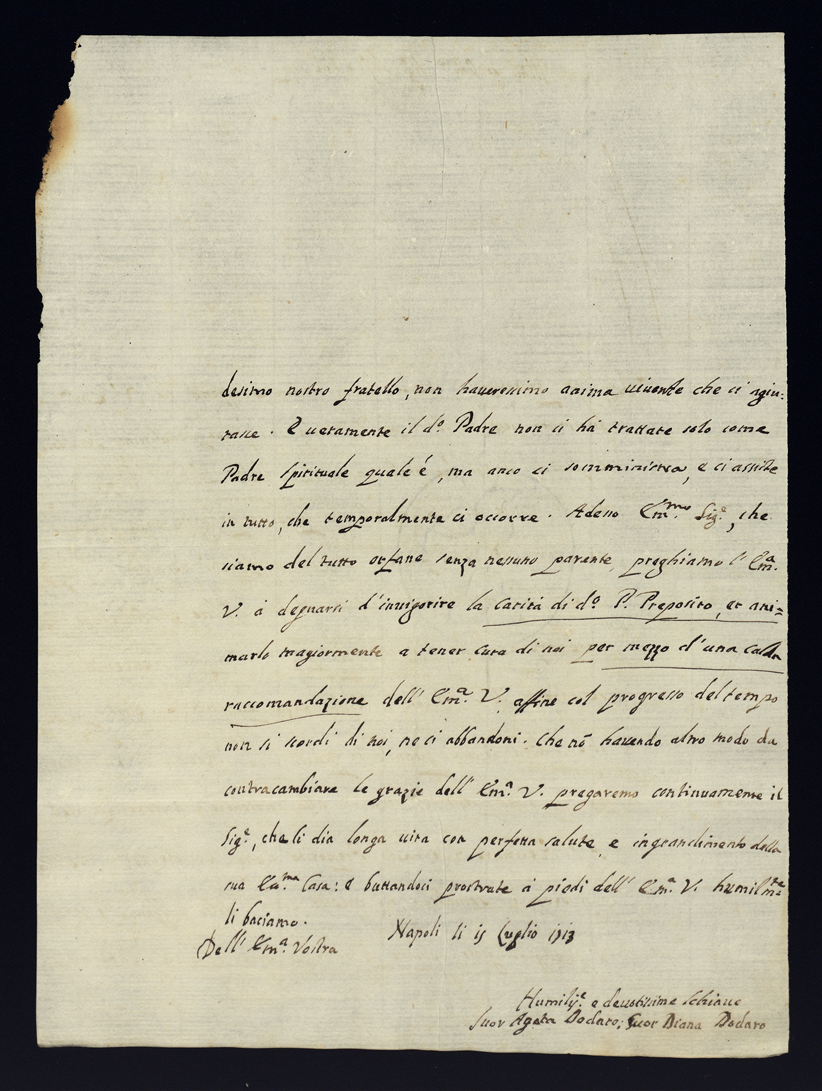 desimo nostro fratello, non haueressimo anima uiuente che ci agiu-
tasse. E ueramente il d.º Padre non ci há trattate solo come
Padre spirituale quale é, ma anco ci somministra, e ci assiste
in tutto, che temporalmente ci occorre. Adesso Em.mo Sig.e, che
siamo del tutto orfane senza nessuno parente, preghiamo l' Em.a
V. á degnarsi d'inuigorire la carità di d.º P. Preposito, et ani=
marlo magiormente a tener cura di noi per mezzo d'una calda
raccomandazione dell' Em.a V. affine col progresso del tempo
non si scordi di noi, ne ci abbandoni. Che nõ hauendo altro modo da
contracambiare le grazie dell' Em.a V. pregaremo continuamente il
Sig.e, che li dia longa uita con perfetta salute, e ingrandimento della
sua Em.ma Casa: e buttandoci prostrate á piedi dell' Em.a V. humilm.te
li baciamo.
Napoli li 15 Luglio 1713
Dell' Em.a Vostra
Humilis.e e deuotissime Schiaue
Suor Agata Dodaro, Suor Diana Dodaro